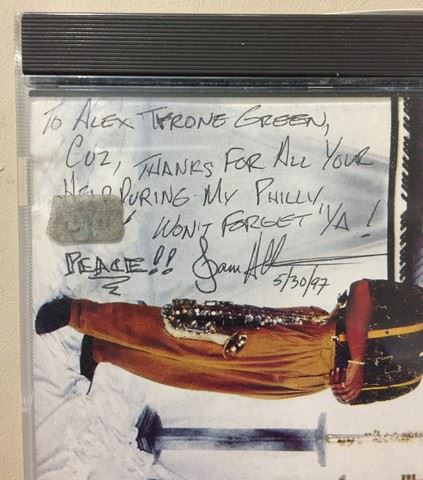 To Alex Tyrone Green,
Cuz, Thanks For All Your
Help During My Philly
Won't Forget Ya!
Peace!! Sam
5/30/97